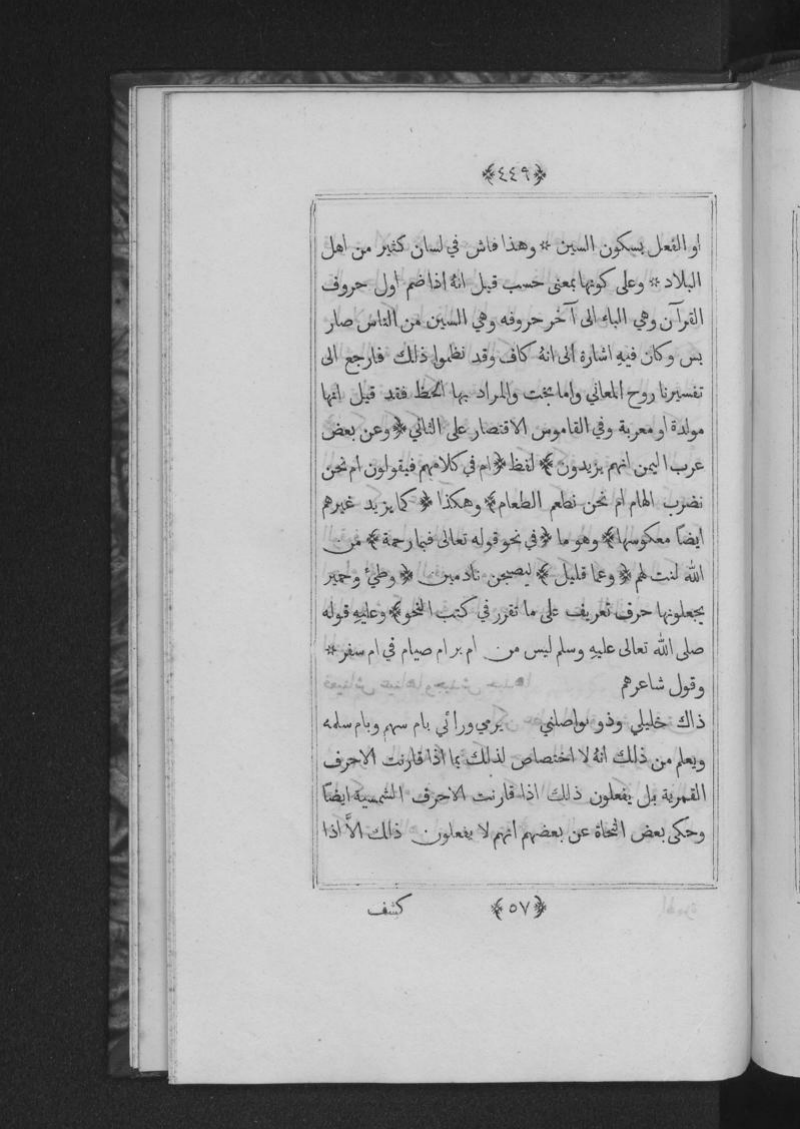 ﴿٤٤٩﴾
او الفعل بسكون السين * وهذا فاش في لسان كثير من اهل
البلاد * وعلى كونها بمعنى حسب قيل انهُ اذا ضم اول حروف
القرآن وهي الباء الى آخر حروفه وهي السين من الناس صار
بس وكان فيهِ اشارة الى انهُ كاف وقد نظموا ذلك فارجع الى
تفسيرنا روح المعاني واما بخت والمراد بها الحظ فقد قيل انها
مولدة او معربة وفي القاموس الاقتصار على الثاني ﴿ وعن بعض
عرب اليمن انهم يزيدون ﴾ لفظ ﴿ ام في كلامهم فيقولون ام نحن
نضرب الهام ام نحن نطعم الطعام ﴾ وهكذا ﴿ كما يزيد غيرهم
ايضاً معكوسها ﴾ وهو ما ﴿ في نحو قوله تعالى فبما رحمة ﴾ من
الله لنت لهم ﴿ وعما قليل ﴾ ليصبحن نادمين ﴿ وطيء وحمير
يجعلونها حرف تعريف على ما تقرر في كتب النحو ﴾ وعليهِ قوله
صلى الله تعالى عليهِ وسلم ليس من ام بر ام صيام في ام سفر *
وقول شاعرهم
ذاك خليلي وذو يواصلني يرمي ورائي بام سهم وبام سلمه
ويعلم من ذلك انهُ لا اختصاص لذلك بما اذا قارنت الاحرف
القمرية بل يفعلون ذلك اذا قارنت الاحرف الشمسية ايضاً
وحكى بعض النحاة عن بعضهم انهم لا يفعلون ذلك الاَّ اذا
﴿٥٧﴾ كشف